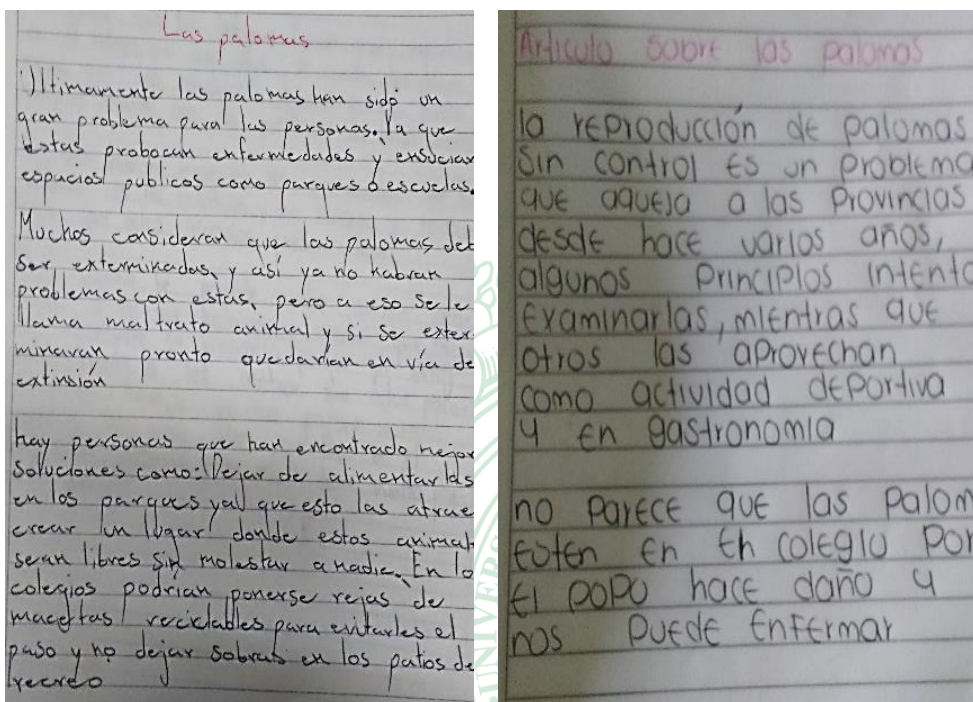 Las palomas
Ultimamente las palomas han sido un
gran problema para las personas. Ya que
estas probocan enfermedades y ensucian
espacios publicos como parques o escuelas.
Muchos consideran que las palomas deb
ser exterminadas, y así ya no habran
problemas con estas, pero a eso se le
llama maltrato animal y si se exter
minaran pronto quedarían en vía de
extinsión
hay personas que han encontrado mejor
soluciones como: Dejar de alimentarlas
en los parques ya que esto las atrae
crear un lugar donde estos animal
seran libres sin molestar a nadie. En lo
colegios podrian ponerse rejas de
macetas reciclables para evitarles el
paso y no dejar sobras en los patios de
recreo
Articulo sobre las palomas
la reproducción de palomas
sin control es un problema
que aqueja a las Provincias
desde hace varios años,
algunos Principios intenta
Examinarlas, mientras que
otros las aprovechan
como actividad deportiva
y en gastronomia
no parece que las Palom
esten en eh colegio Por
El popo hace daño y
nos puede Enfermar
UNIVERS